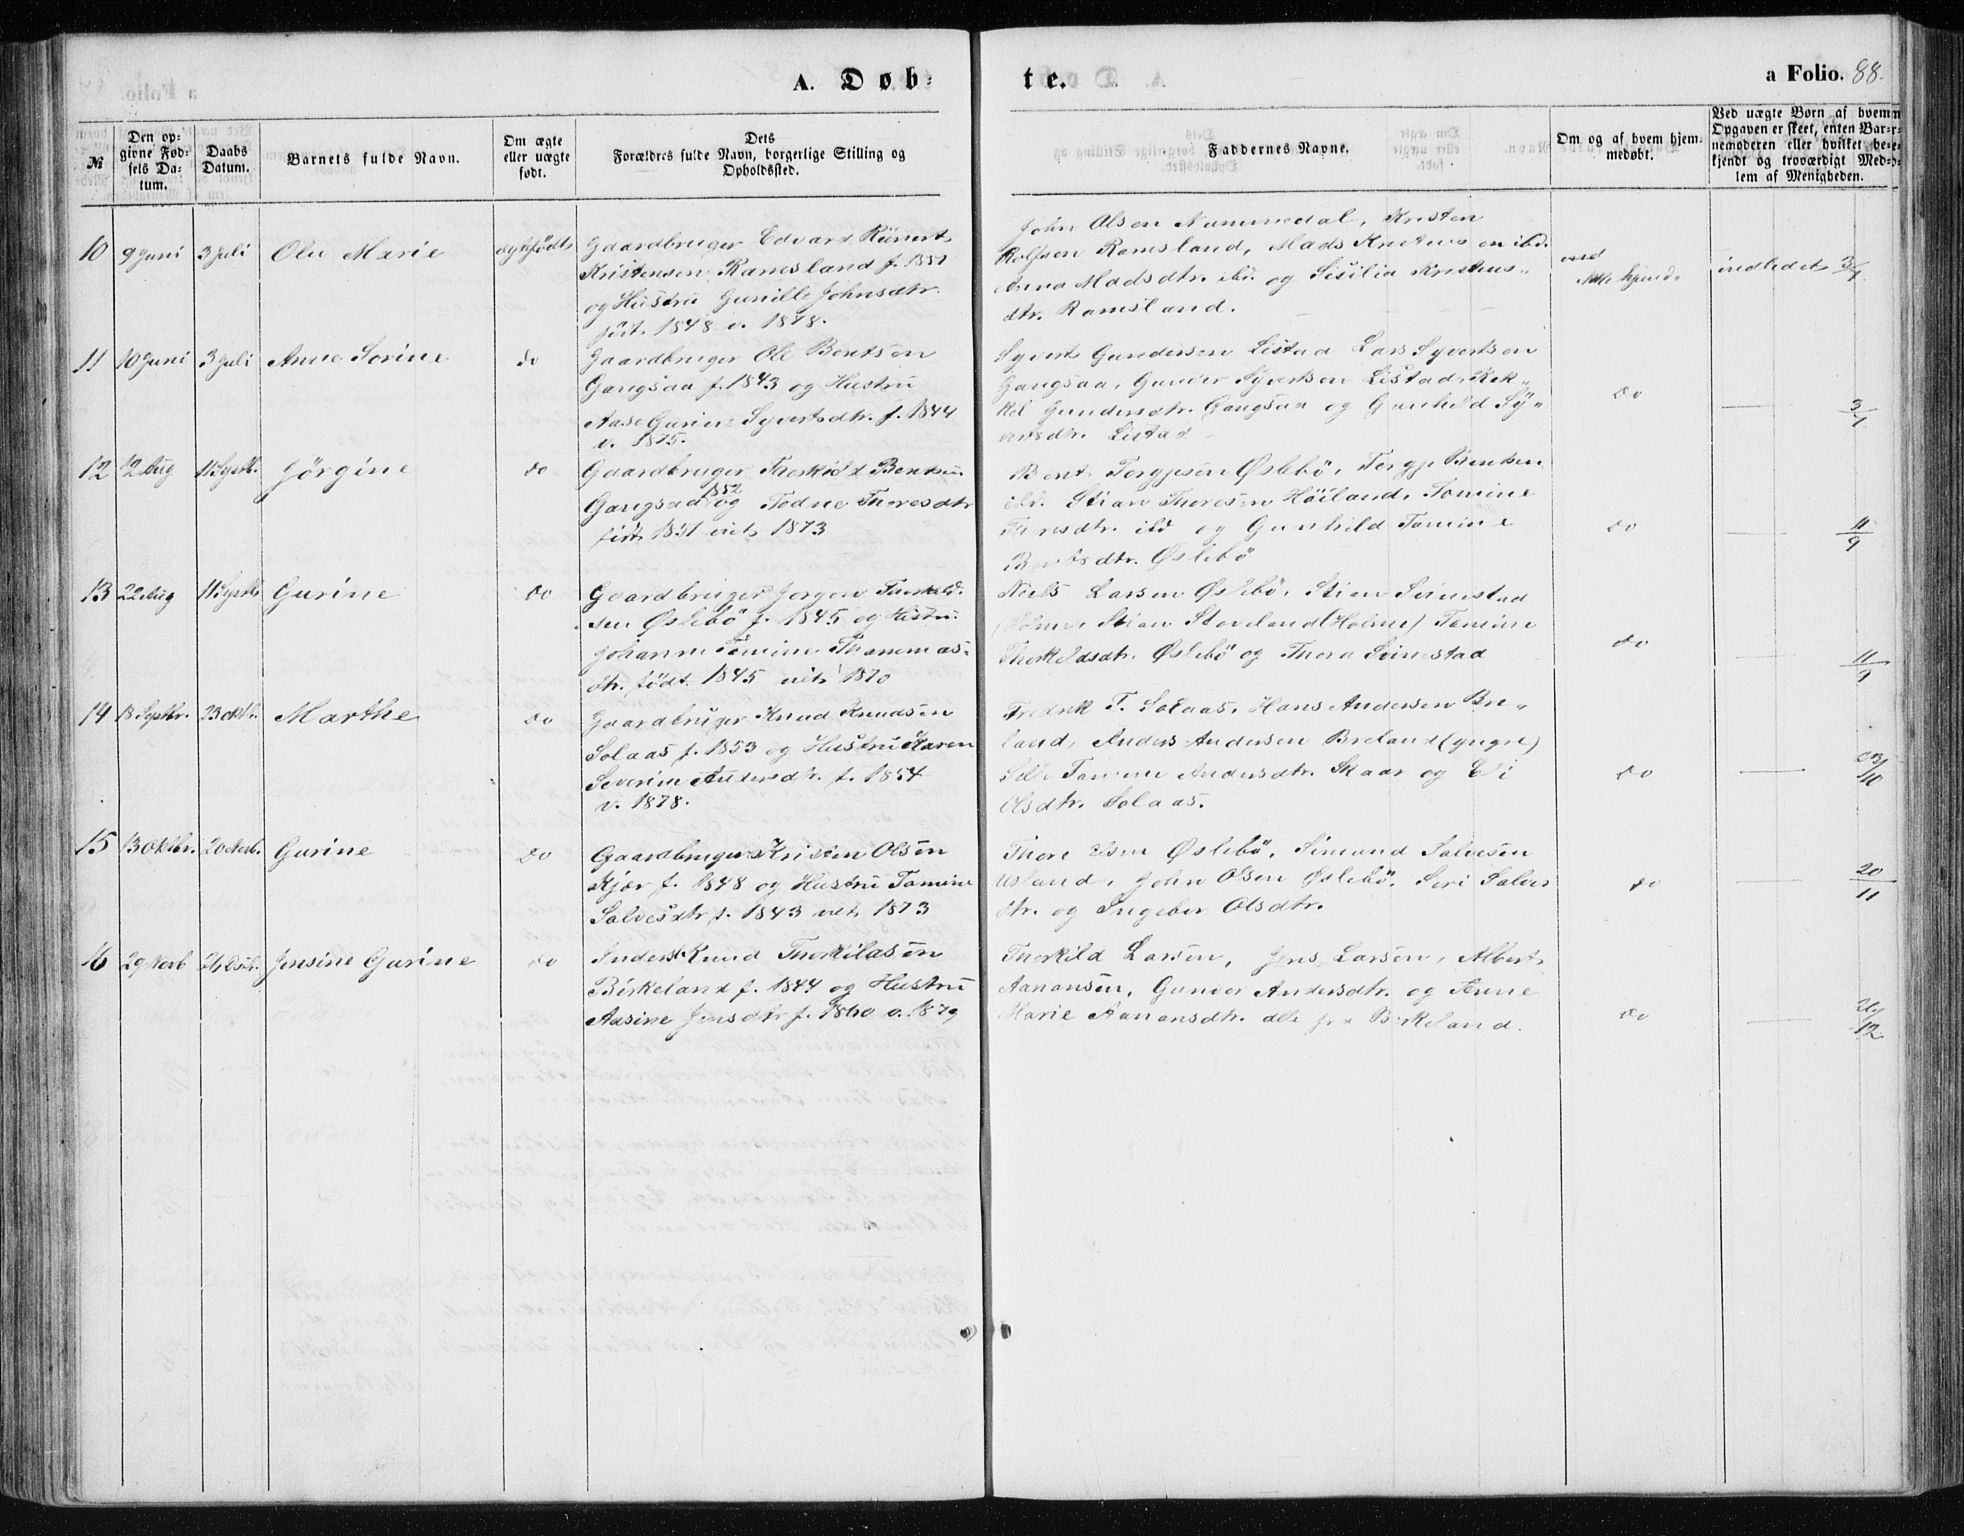 A. Døb-
te.
a Folio. 88.
№
Den op-
givne Fød-
sels Da-
tum.
Daabs
Datum.
Barnets fulde Navn.
Om ægte
eller uægte
født.
Dets
Forældres fulde Navn, borgerlige Stilling og
Opholdssted.
Faddernes Navne.
Om og af hvem hjem-
medøbt.
Ved uægte Børn af hvem
Opgaven er skeet, enten Bar-
nemoderen eller hvilket be-
kjendt og troværdigt Med-
lem af Menigheden.
10 9 Juni 3 Juli Olu Marie ægtefødt
Gaardbruger Edvard
Kristensen Ramsland f. 1851
og Hustru Gunille Johnsdtr.
født 1848 v. 1878.
John Olsen Nummedal, Kristen
Ramsland, Mads ibd.
Anna Madsdtr. ibd. og Sisilia Kristens-
dtr. Ramsland.
indledet 3/7
11 10 Juni 3 Juli Anne Sorine do
Gaardbruger Ole Bentsen
Gangsaa f. 1843 og Hustru
Aase Gurine Syvertsdtr. f. 1844
v. 1875.
Syvert Gundersen Listad Lars Syvertsen
Gangsaa, Gunder Syvertsen Listad, Rak-
kel Gundersdtr. Gangsaa og Gunhild Sy-
vertsdtr. Listad
do 3/7
12 12 Aug 11 Septb. Jörgine do
Gaardbruger Therkild Bentsen
Gangsaa 1852 og Todne Thoresdtr
født 1851 viet 1873
Bent Torgjesen Øslebö, Tergje Bentsen
ibd. Stian Thoresen Höiland, Tomine
Thoresdtr. ibd og Gunhild Tomine
Bentsdtr. Øslebö
do 11/9
13 22 Aug 11 Septb Gurine do
Gaardbruger Jorgen Therkild-
sen Øslebö f. 1845 og Hustru
Johanne Tomine Thommas-
dtr. født 1845 viet 1870
Niels Larsen Øslebö, Stian Svinestad
(Holme, Stian Stoveland (Holme) Tomine
Therkildsdtr. Øslebö og Thora Svinestad
do 11/9
14 18 Septbr. 23 oktb. Marthe do
Gaardbruger Knud Knudsen
Solaas f. 1853 og Hustru Karen
Severine Andersdtr. f. 1854
v. 1878.
Fredrik T. Solaas, Hans Andersen Bre-
land, Anders Andersen Breland (yngre)
Tomine Andersdtr. Skaar og
Olsdtr. Solaas.
do 23/10
15 13 Oktbr. 20 Novb. Gurine do
Gaardbruger Kristen Olsen
Kjær f. 1848 og Hustru Tomine
Salvesdtr f. 1843 viet 1873
Thore Olsen Øslebö, Simund Salvesen
Usland, John Olsen Øslebö, Seri Salves
dtr. og Ingebor Olsdtr.
do 20/11
16 29 Novb 26 Dec. Jensine Gurine do
Inderst Knud Therkildsen
Birkeland f. 1844 og Hustru
Aasine Jensdtr f. 1860 v. 1879
Therkild Larsen, Jens Larsen, Albert
Aanonsen, Gunvor Andersdtr. og Anne
Marie Aanonsdtr. alle fra Birkeland.
do 26/12